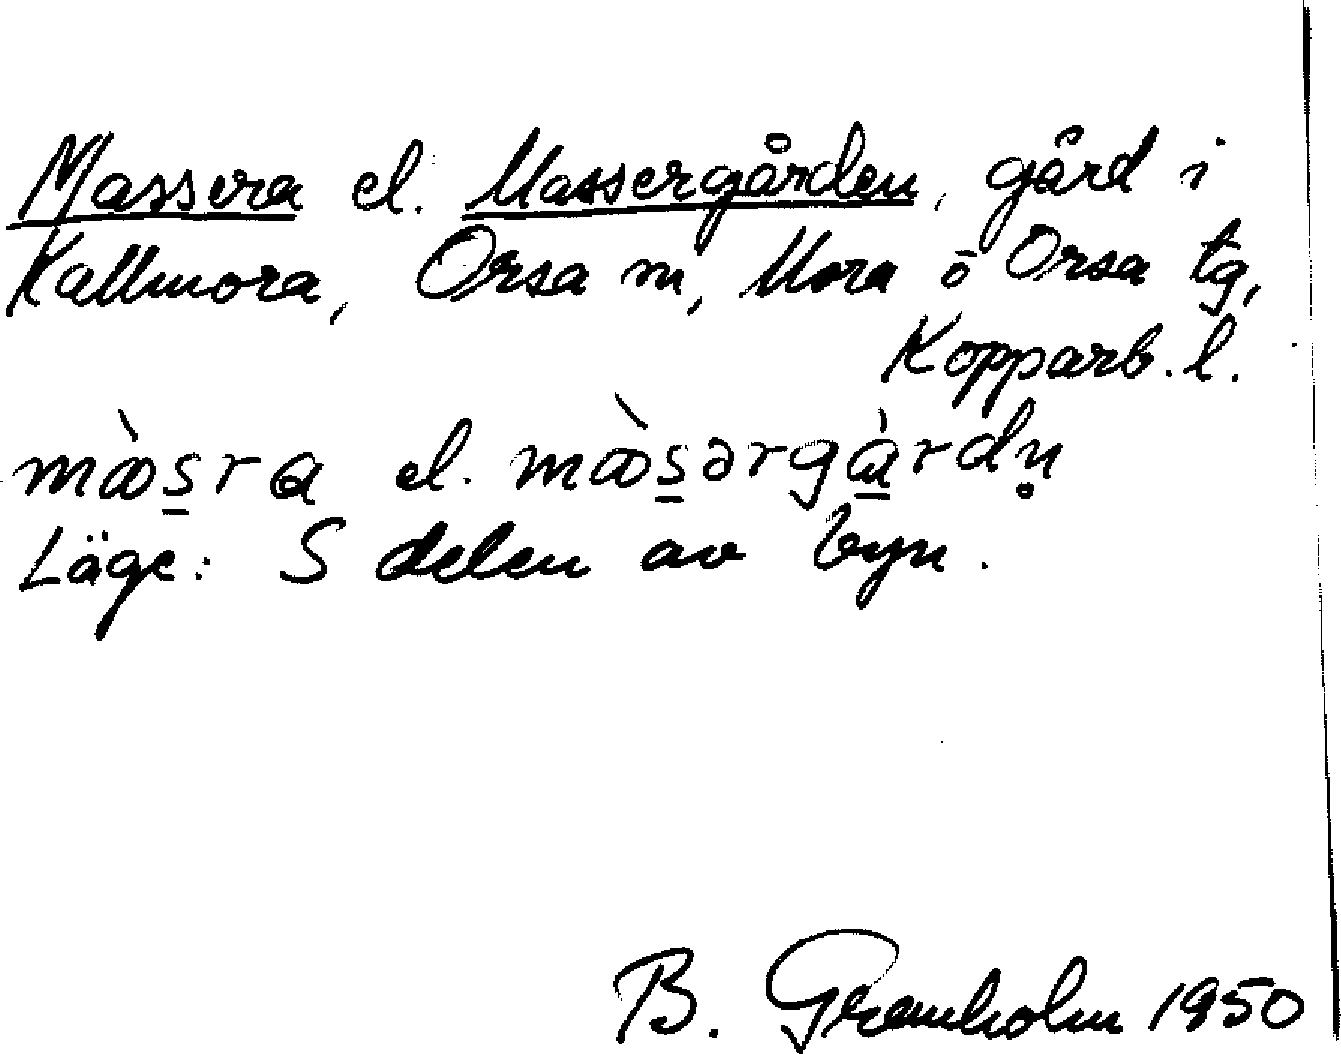 Massera el. Massergården, gård i
Kallmora, Orsa sn, Mora o Orsa tg,
Kopparb. l.
mɑ̀s̲ra el. mɑ̀s̲ərgà̲rdn̥
Läge: S delen av byn.
B. Gremholm 1950